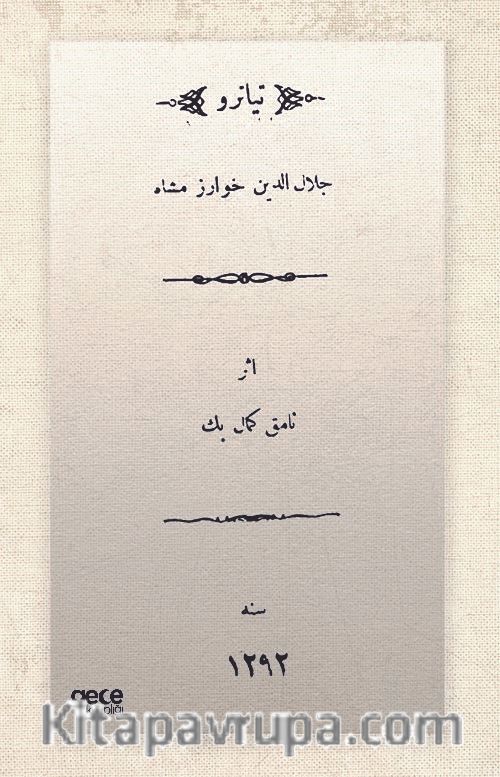 تیاترو
جلال الدین خوارز مشاه
اثر
نامق کمال بك
سنه
١٢٩٢
gece
kitaplığı
Kitapavrupa.com